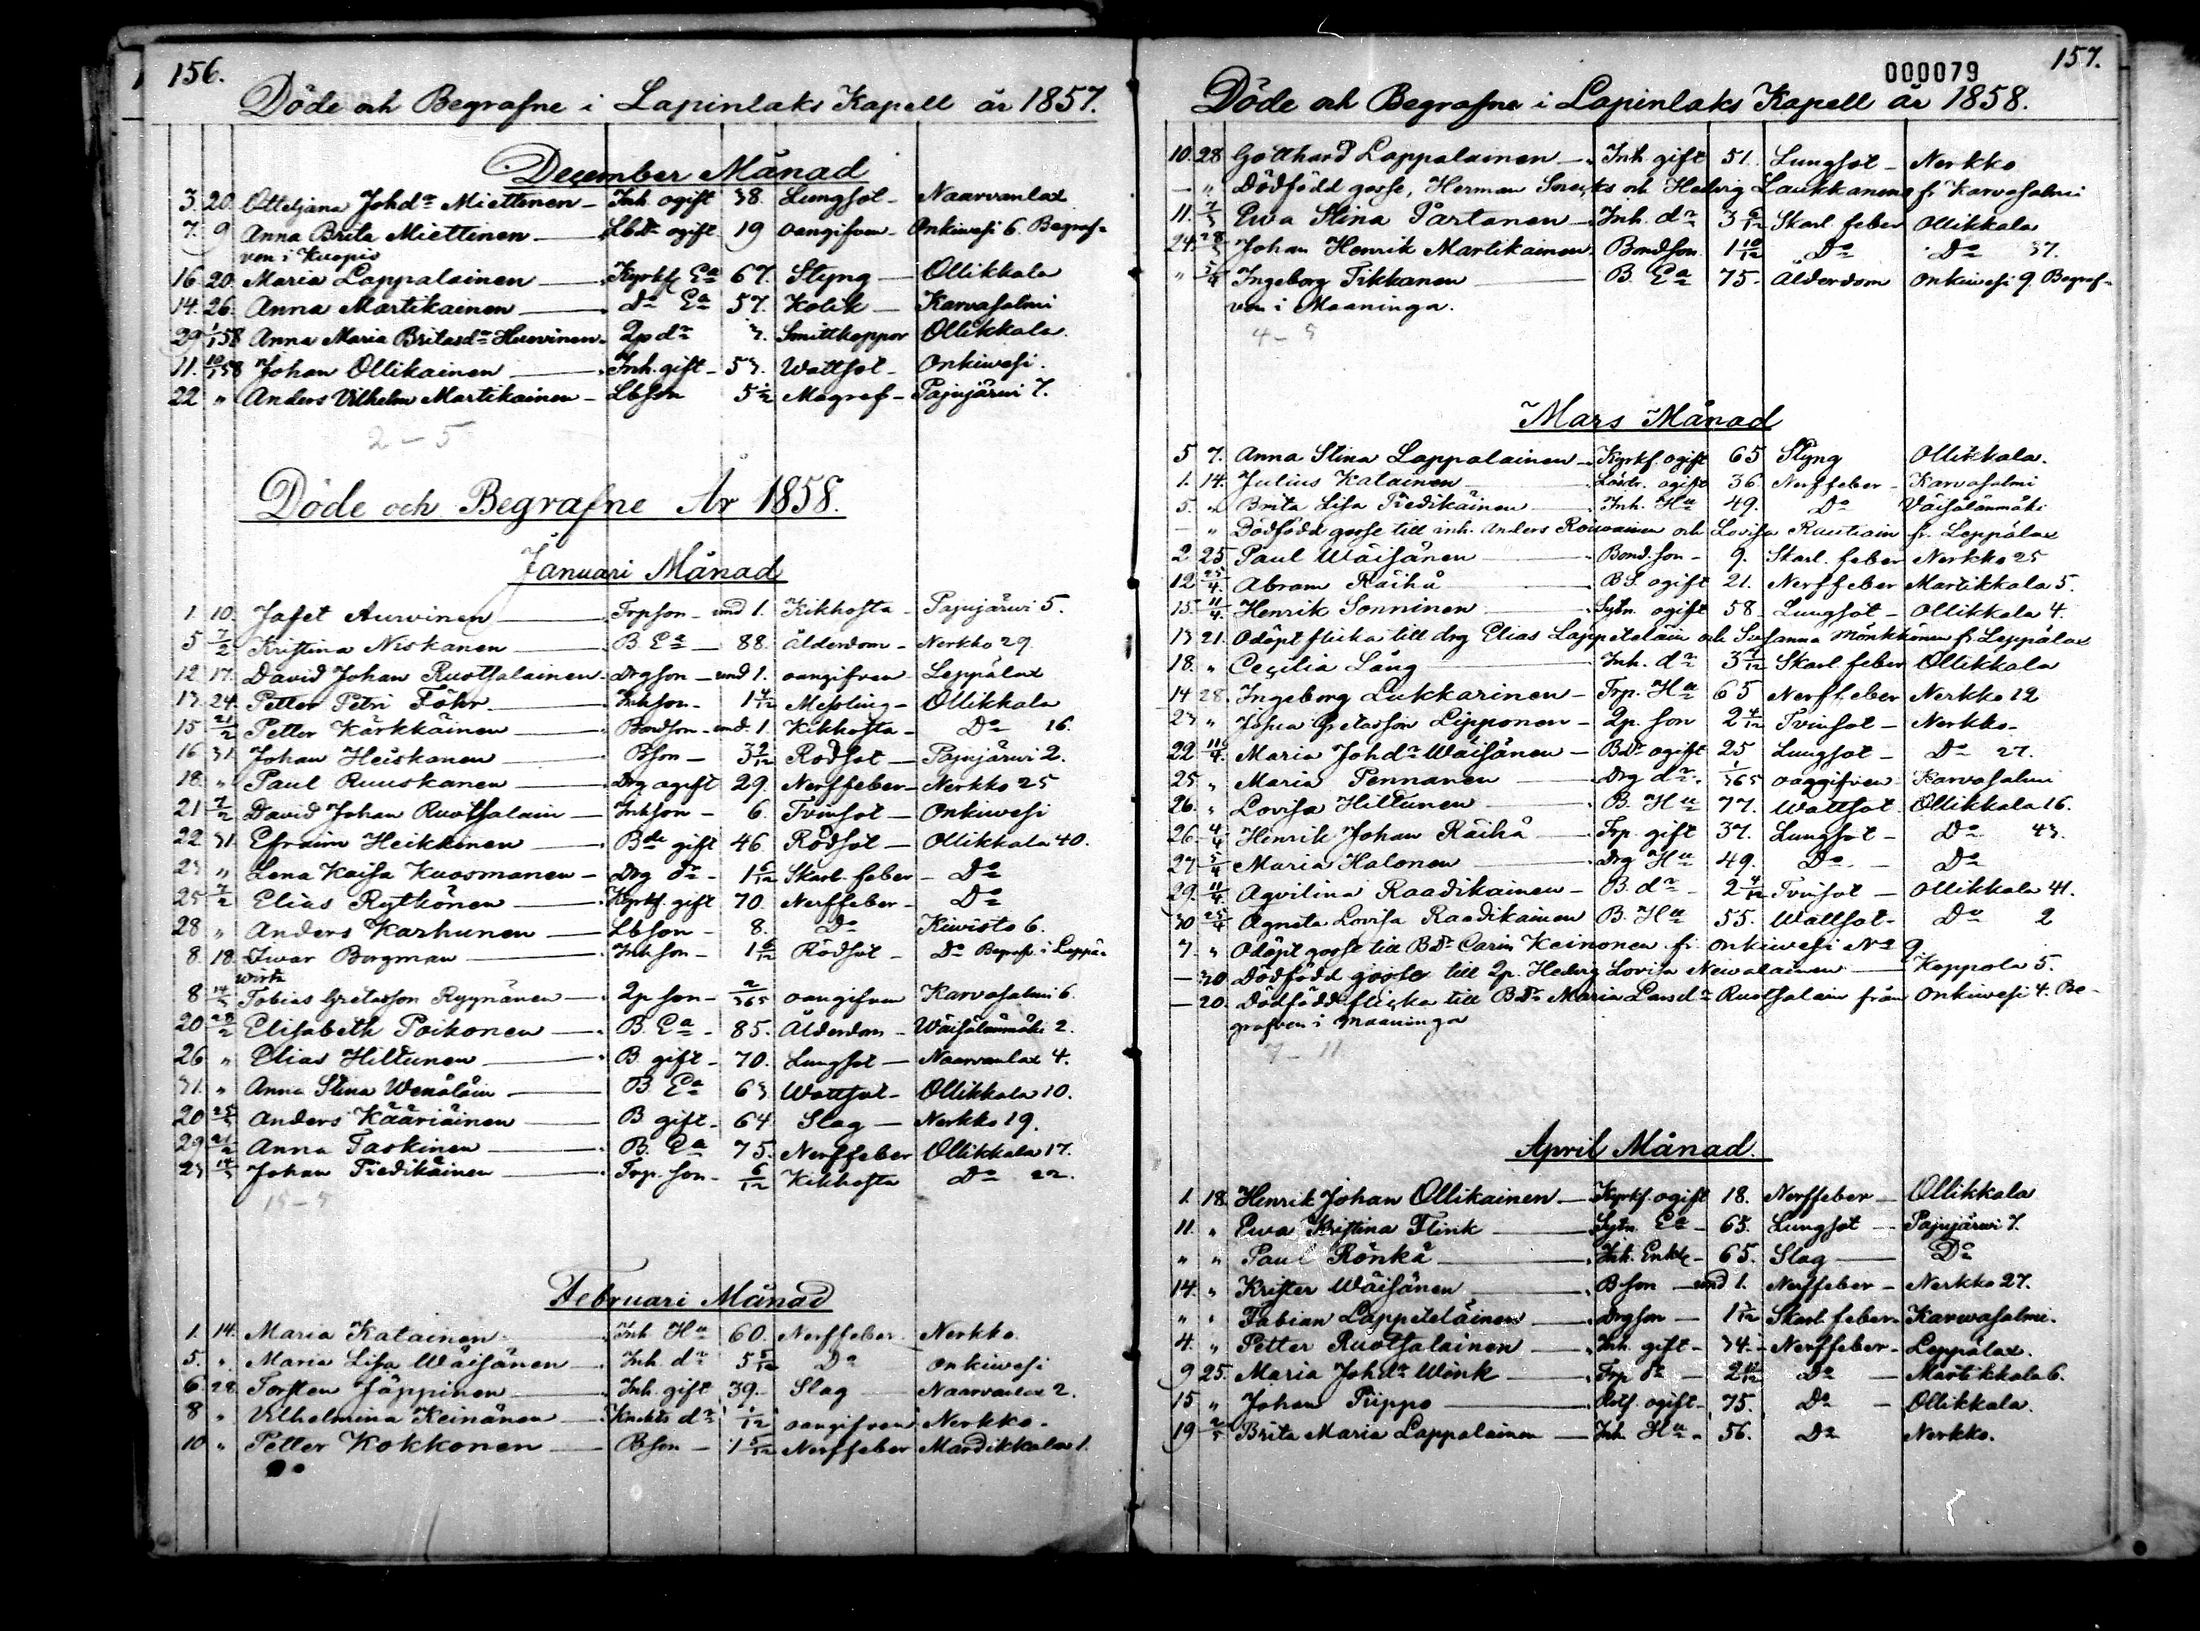 156.
Döde och Begrafne i Lapinlaks Kapell år 1857.
December Månad
3. 20. Ottiljana Johdr Miettinen - Inh. ogift 38. Lungsot - Naarvanlax
7. 9 Anna Brita Miettinen Lbdr ogift 19 oangifven - Onkiwesi 6. Begraf-
ven i Kuopio
16. 20. Maria Lappalainen Kyrkf. Ea 67. Styng Ollikkala
14. 26. Anna Martikainen do Ea 57. Kolik - Karvasalmi
29 1/1 58 Anna Maria Britasdr Huovinen - 2p dr 3. Smittkoppor Ollikkala.
11. 10/1 58 Johan Ollikainen Inh. gift - 53. Wattsot - Onkiwesi.
22 " Anders Vilhelm Martikainen - Lbson 5 1/2 Magref - Pajujärwi 7.
2 - 5
Döde och Begrafne År 1858.
Januari Månad
1. 10. Jafet Aurvinen Trpson - und 1. Kikhosta - Pajujärwi 5.
5 7/2 Kristina Niskanen B Ea - 88. Ålderdom - Nerkko 29.
12 17. David Johan Ruotsalainen - Drgson - und 1. oangifven Leppälax
13. 24. Petter Petri Föhr Inhson - 1 4/12 Messling - Ollikkala
15 21/2 Petter Kärkkäinen Bondson - und. 1. Kikhosta - Do 16.
16 31. Johan Heiskanen Bson - 3 2/12 Rödsot - Pajujärwi 2.
18. " Paul Ruuskanen Drg ogift 29. Nerffeber - Nerkko 25
21 7/2 David Johan Ruotsalain Inhson - 6. Tvinsot - Onkiwesi
22 31. Efraim Heikkinen Bde gift 46. Rödsot - Ollikkala 40.
23 " Lena Kaisa Kuosmanen - Drg dr - 1 6/12 Skarl. feber - Do
25 7/2 Elias Rytkönen Kyrkf. gift 70. Nerffeber - Do
28 " Anders Karhunen Lbson - 8. Do Kiwisto 6.
8. 18. Iwar Borgman Inhson - 1 6/12 Rödsot - Do Begraf. i Leppä-
wirta
8 14/3 Tobias Gretasson Ryynänen 2p son - 2/365 oangifven Karvasalmi 6.
20 28/2 Elisabeth Poikonen B. Ea - 85. Ålderdom - Wäisälänmäki 2.
26 " Elias Hiltunen B gift - 70. Lungsot - Naarvanlax 4.
31. " Anna Stina Wenäläin B Ea 63 Wattsot - Ollikkala 10.
20 25/3 Anders Kääriäinen B gift - 64 Slag - Nerkko 19.
29 21/2 Anna Taskinen B. Ea 75. Nerffeber Ollikkala 17.
23 14/3 Johan Tiedikäinen Trp. son - 6/12 Kikhosta Do 22.
15 - 5
Februari Månad
1. 14. Maria Katainen Inh Hu 60. Nerffeber Nerkko.
5. " Maria Lisa Wäisänen Inh. dr 5 5/12 Do Onkiwesi
6 28. Torsten Jäppinen Inh. gift 39. Slag Naarvanlax 2.
8 " Vilhelmina Keinänen Knekts dr 1/12 oangifven Nerkko.
10 " Petter Kokkonen Bson - 1 5/12 Nerffeber Mardikkala 1.
157.
000079
Döde och Begrafne i Lapinlaks Kapell år 1858.
10. 28 Gotthard Lappalainen Inh. gift 51. Lungsot - Nerkko
- " Dödfödd gosse, Herman och Hedvig Laukkanens fr. Karvasalmi
11. 7/3 Ewa Stina Partanen Inh. dr 3 6/12 Skarl. feber Ollikkala
24. 28/3 Johan Henrik Martikainen Bondson 1 10/12 Do Do 37.
" 5/4 Ingeborg Tikkanen B. Ea 75. Ålderdom Onkiwesi 9. Begraf-
ven i Maaninga.
4 - 5
Mars Månad
5 7. Anna Stina Lappalainen Kyrkf. ogift 65 Styng Ollikkala.
1. 14. Julius Katainen ogift 36. Nerffeber - Karvasalmi
5. " Brita Lisa Tiedikäinen Inh. Hu 49. Do Väisälänmäki
- " Dödfödd gosse till inh. Anders och Lovisa Rautiain fr. Leppälax
2 25 Paul Wäisänen Bond. son - 9. Skarl. feber Nerkko 25
12 25/4 Abram Räihä BS. ogift 21. Nerffeber Martikkala 5.
15. 11/4 Henrik Sonninen Sytn. ogift 58 Lungsot - Ollikkala 4.
13 21. Odöpt flicka till drg Elias Lappeteläin och Susanna Mönkkönen fr. Leppälax
18. " Cecilia Lång Inh. dr 3 4/12 Skarl. feber Ollikkala
14 28. Ingeborg Lukkarinen - Trp. Hu 65 Nerffeber Nerkko 12
23 " Johan Gretasson Lipponen - 2p. son 2 4/12 Tvinsot - Nerkko -
22 11/4 Maria Johdr Wäisänen - Bdr ogift 25 Lungsot - Do 27.
25 " Maria Pennanen Drg dr. 1/365 oaggifven Karvasalmi
26. " Lovisa Hiltunen B. Hu 77. Wattsot Ollikkala 16.
26. 4/4 Henrik Johan Räihä Trp. gift 37. Lungsot - Do 43.
27 5/4 Maria Halonen Drg Hu 49. Do Do
29. 11/4 Agvilina Raadikainen - B. dr - 2 4/12 Tvinsot Ollikkala 41.
30 25/4 Agneta Lovisa Raadikainen B. Hu 55. Wattsot - Do 2
7. " Odöpt gosse till Bdr Carin Keinonen fr. Onkiwesi No 9.
- 30 Dödfödd gosse till 2p. Hedvig Lovisa Newalainen Keppola 5.
- 20. Dödfödd flicka till Bdr Maria Larsdr Ruotsalain från Onkiwesi 4. Be-
grafven i Maaninga
7 - 11
April Månad.
1. 18. Henrik Johan Ollikainen - Kyrkf. ogift 18. Nerffeber Ollikkala
11. " Ewa Kristina Flink Sytn. Ea - 65. Lungsot - Pajujärwi 7.
" " Paul Rönkä Inh. Enkl. - 65. Slag Do
14. " Krister Wäisänen Bson - und 1. Nerffeber - Nerkko 27.
" " Fabian Lappeteläinen Drgson - 1 5/12 Skarl. feber - Karwasalmi.
4. " Petter Ruotsalainen Inh. gift - 34. Nerffeber - Leppälax.
9 25. Maria Johdr Wink Trp dr - 2 11/12 Do - Martikkala 6.
15 " Johan Piippo Rotf. ogift - 75. Do - Ollikkala.
19 2/5 Brita Maria Lappalainen Inh. Hu - 56. Do Nerkko.